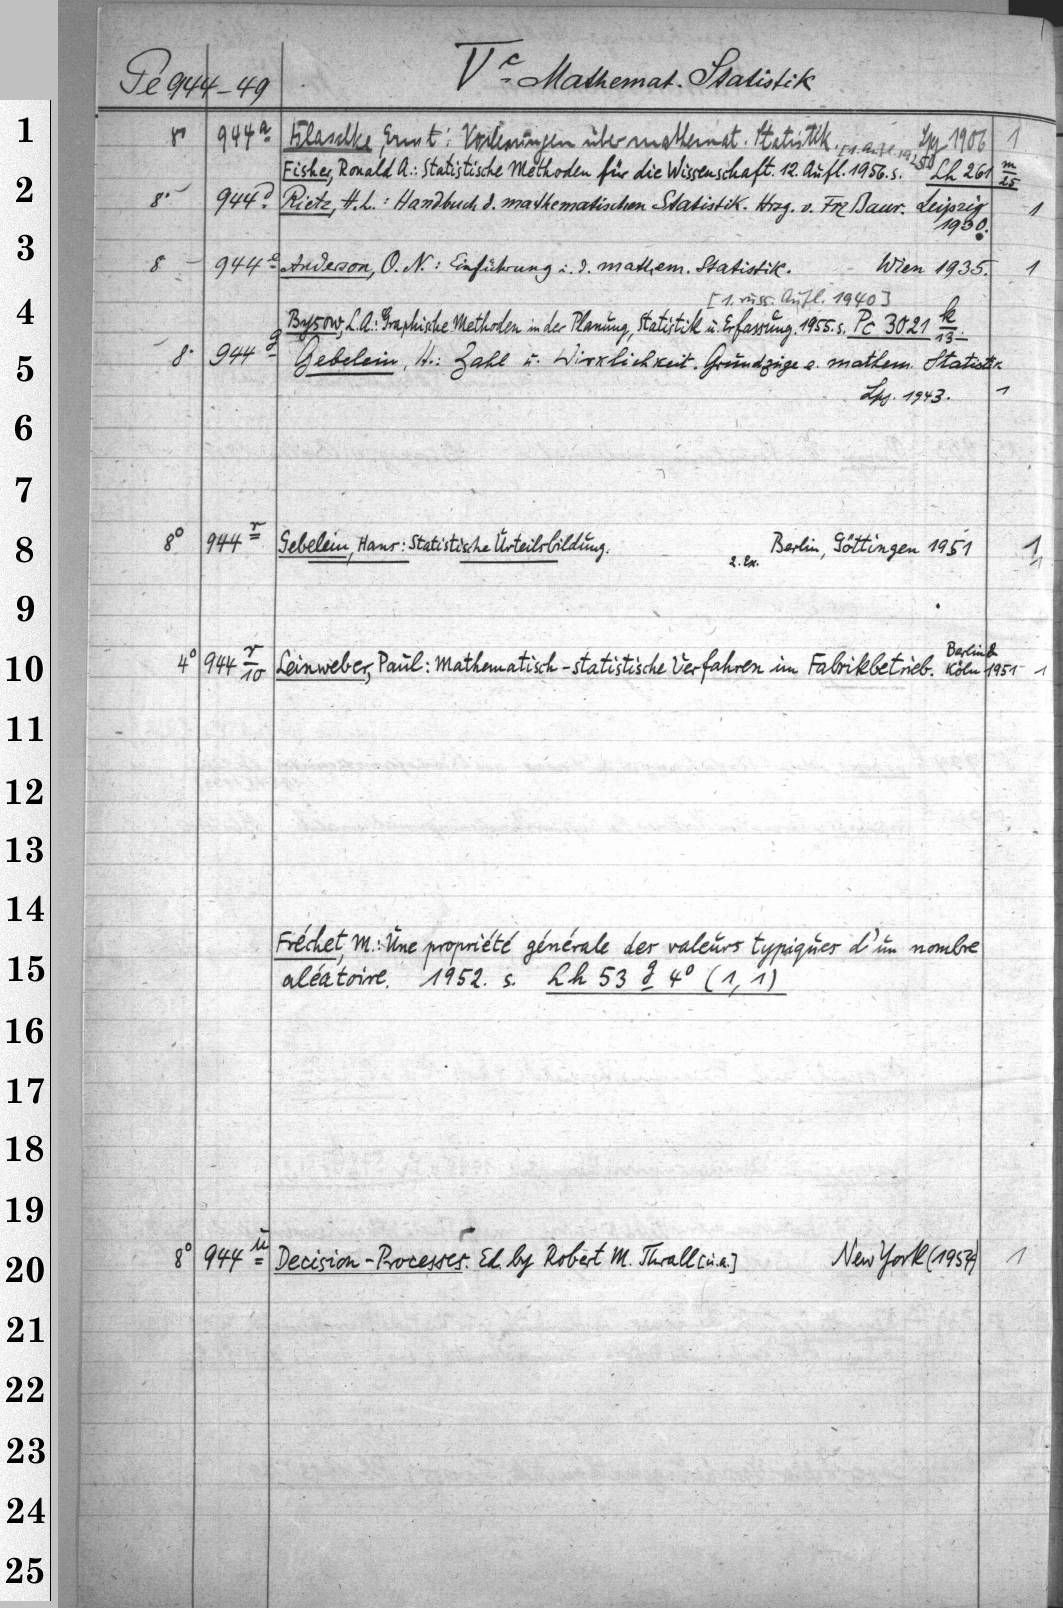 Pe 944-49 V c Mathemat. Statistik
1
8° 944 a Blaschke, Ernst: Vorlesungen über mathemat. Statistik. Lpz 1906 1
[1. Aufl. 1925]
Fisher, Ronald A.: Statistische Methoden für die Wissenschaft. 12. Aufl. 1956. s. Lh 261 m/25
2
8° 944 d Rietz, H. L.: Handbuch d. mathematischen Statistik. Hrsg. v. Frz Baur. Leipzig 1930. 1
3
8 944 e Anderson, O. N.: Einführung i. d. mathem. Statistik. Wien 1935. 1
4
[1. russ. Aufl. 1940]
Bysow, L. A.: Graphische Methoden in der Planung, Statistik u. Erfassung. 1955. s. Pc 3021 k/13
5
8° 944 g Gebelein, H.: Zahl u. Wirklichkeit. Grundzüge e. mathem. Statistik
Lpz. 1943. 1
6
7
8
8° 944 r Gebelein, Hans: Statistische Urteilsbildung. Berlin, Göttingen 1951 1
2. Ex. 1
9
10
4° 944 r/10 Leinweber, Paul: Mathematisch-statistische Verfahren im Fabrikbetrieb. Berlin & Köln 1951 1
11
12
13
14
Fréchet, M.: Une propriété générale des valeurs typiques d'un nombre
15
aléatoire. 1952. s. Lh 53 g 4° (1,1)
16
17
18
19
20
8° 944 u Decision-Processes. Ed. by Robert M. Thrall [u.a.] New York (1954) 1
21
22
23
24
25